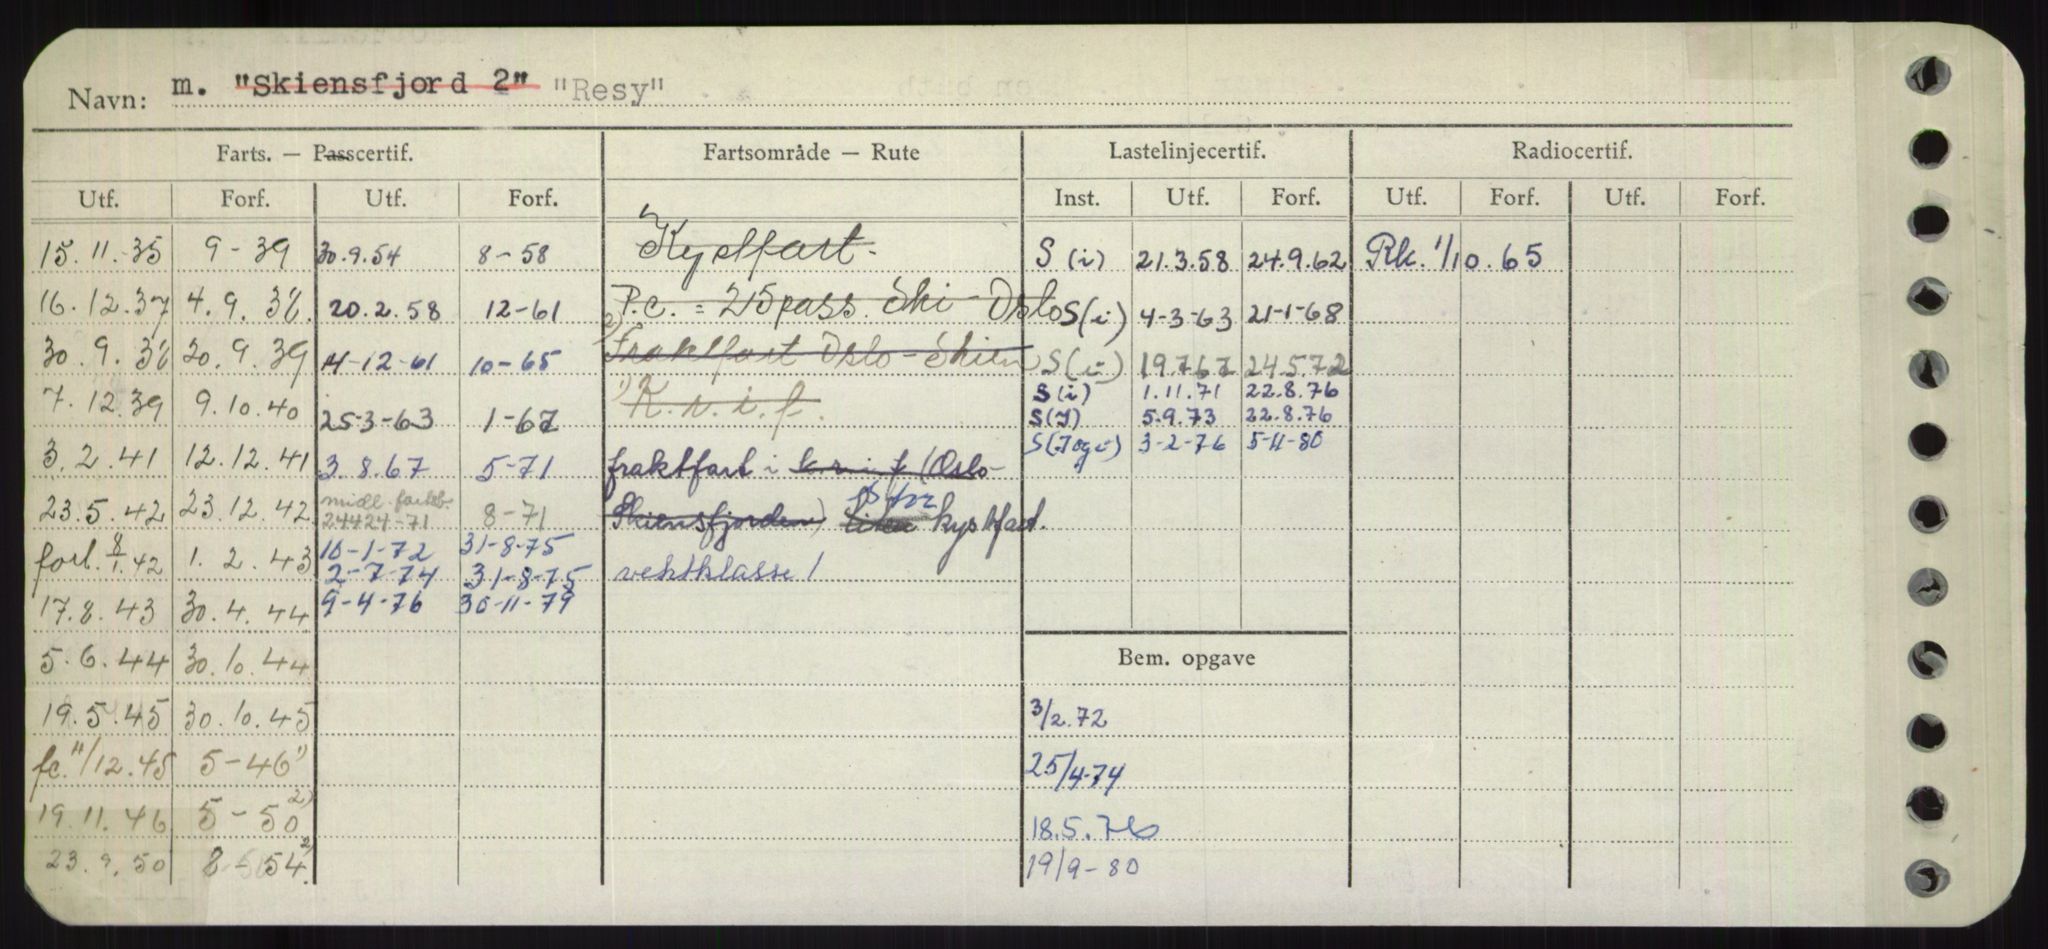 Navn: m. "Skiensfjord 2" "Resy"
Farts. — Passcertif. Fartsområde — Rute Lastelinjecertif. Radiocertif.
Utf. Forf. Utf. Forf. Inst. Utf. Forf. Utf. Forf. Utf. Forf.
15.11.35 9-39 30.9.54 8-58 Kystfart. S(i) 21.3.58 24.9.62 Rk. 1/10.65
16.12.37 4.9.38. 20.2.58 12-61 P.c. = 215 pass. Ski-Oslo S(i) 4-3-63 21-1-68
30.9.38 20.9.39 14-12-61 10-65 2) Fraktfart Oslo-Skien S(i) 19.7.67 24.5.72
7.12.39 9.10.40 25-3-63 1-67 1) K.r.i.f. S(i) 1.11.71 22.8.76
S(I) 5.9.73 22.8.76
3.2.41 12.12.41 3.8.67 5-71 fraktfart i k.r.i.f (Oslo- S(I og i) 3-2-76 5-11-80
23.5.42 23.12.42 midl. 24-71 8-71 Skiensfjorden) kystfart.
forl. 8/1.42 1.2.43 10-1-72 31-8-75
2-7-74 31-8-75 vektklasse 1
17.8.43 30.4.44 9-4-76 30-11-79
5.6.44 30.10.44 Bem. opgave
19.5.45 30.10.45 3/2.72
fc. 11/12.45 5-46 1) 25/4-74
19.11.46 5-50 2) 18.5.76
23.9.50 8-54 2) 19/9-80